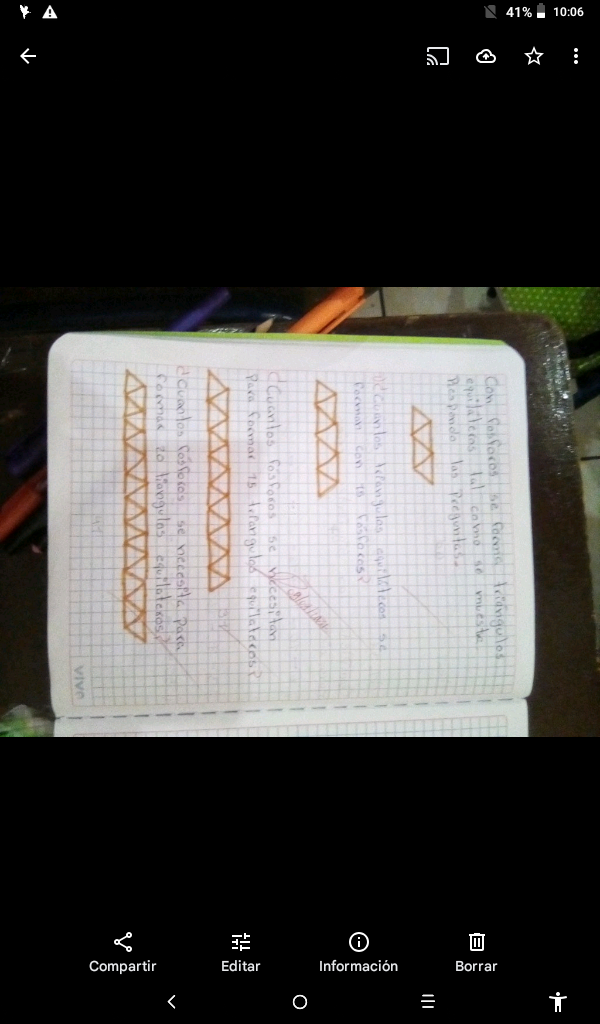 41% 10:06
Con fósforos se forma triángulos
equiláteros tal como se muestra
Responda las preguntas.
¿Cuantos triángulos equiláteros se
forman con 15 fósforos?
¿Cuantos fósforos se necesitan
para formar 15 triángulos equiláteros?
¿Cuantos fósforos se necesita para
formar 20 triángulos equiláteros?
VIVA
Compartir Editar Información Borrar